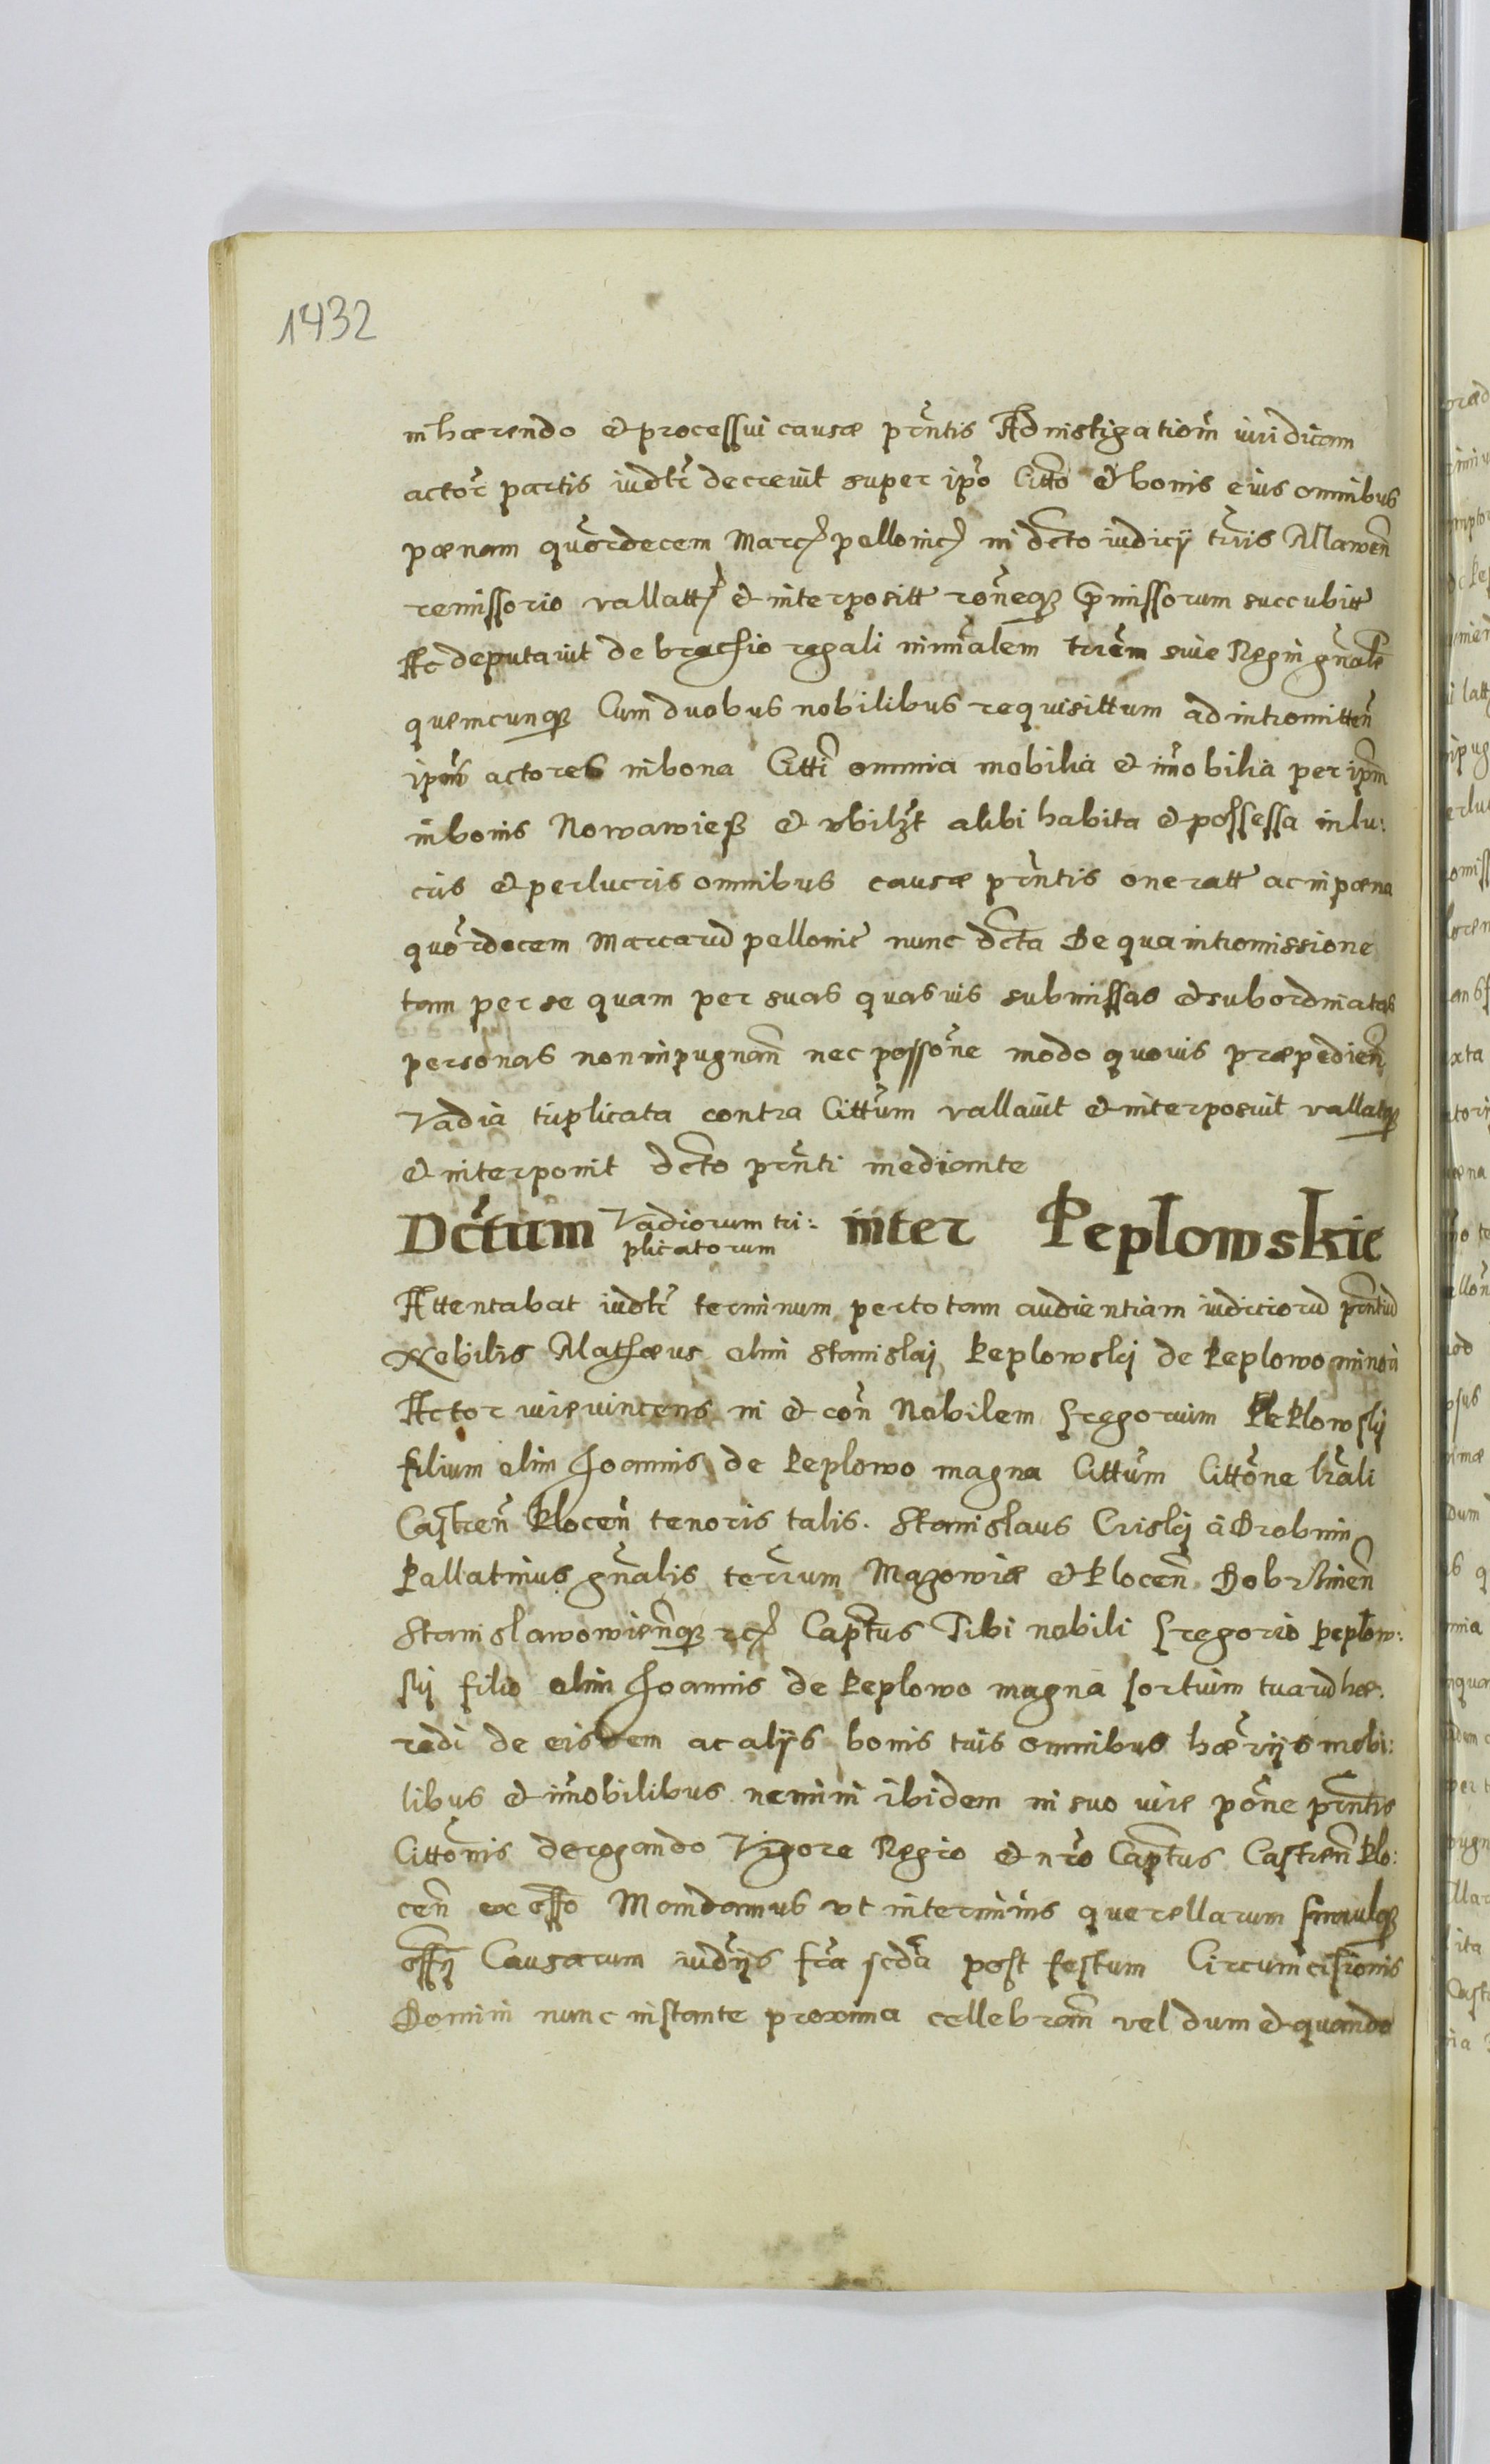 1432
inhærendo et processui causæ prñtis Ad instigationẽ iuridicam
actor̃ partis iudtr̃ decrevit super ipõ Citto et bonis eius omnibus
pænam quõrdecem Marc pellonic in dcto iudicy trris Mlawen
remissorio vallatt et interpositt roneq p̃missorum succubitt
Ac deputavit de brachio regali minr̃alem trrẽm sive Regni gñalẽ
quemcunq Cum duobus nobilibus requisittum ad intromitten
ipõs actores in bona Citti omnia mobilia et im̃obilia per ipm
in bonis Nowawieß et vbilzt alibi habita et possessa in lu:
cris et perlucris omnibus causæ prñtis oneratt ac in pæna
quõrdecem Marcarũ pellonic nunc dcta De qua intromissione
tam per se quam per suas quasvis submissas et subordinatas
personas non inpugnan nec possõne modo quovis præpedien
Vadia triplicata contra Cittũm vallavit et interposuit vallatq
et interponit dcto prñti mediante
Dctum Vadiorum tri: inter Peplowskie
plicatorum
Attentabat iudtr̃ terminum per totam audientiam iudiciorũ prñtiũ
Nobilis Mathæus olim Stanislai Peplowskj de Peplowo minori
Actor iure vincens in et con Nobilem Gregorium Peplowskj
filium olim Joannis de Peplowo magna Cittũm Cittõne lrãli
Castren Plocen tenoris talis. Stanislaus Criskj â Drobnin
Pallatinus gñalis terrũm Mazowiæ et Plocen Dobrzinen
Stanislawowienq rc Captus Tibi nobili Gregorio Peplow:
skj filio olim Joannis de Peplowo magna sortium tuarũ hæ:
redi de eisdem ac alijs bonis tuis omnibus hærr̃ijs mobi:
libus et im̃obilibus nemini ibidem in suo iure põne prñtis
Cittõnis derogando Vigore Regio et nr̃o Captus Castren Plo:
cen ex offo Mandamus vt in terminis querellarum simulq
offij Causarum iudijs fr̃a scdã post festum Circumcisionis
Domini nunc instante proxima cellebran vel dum et quando